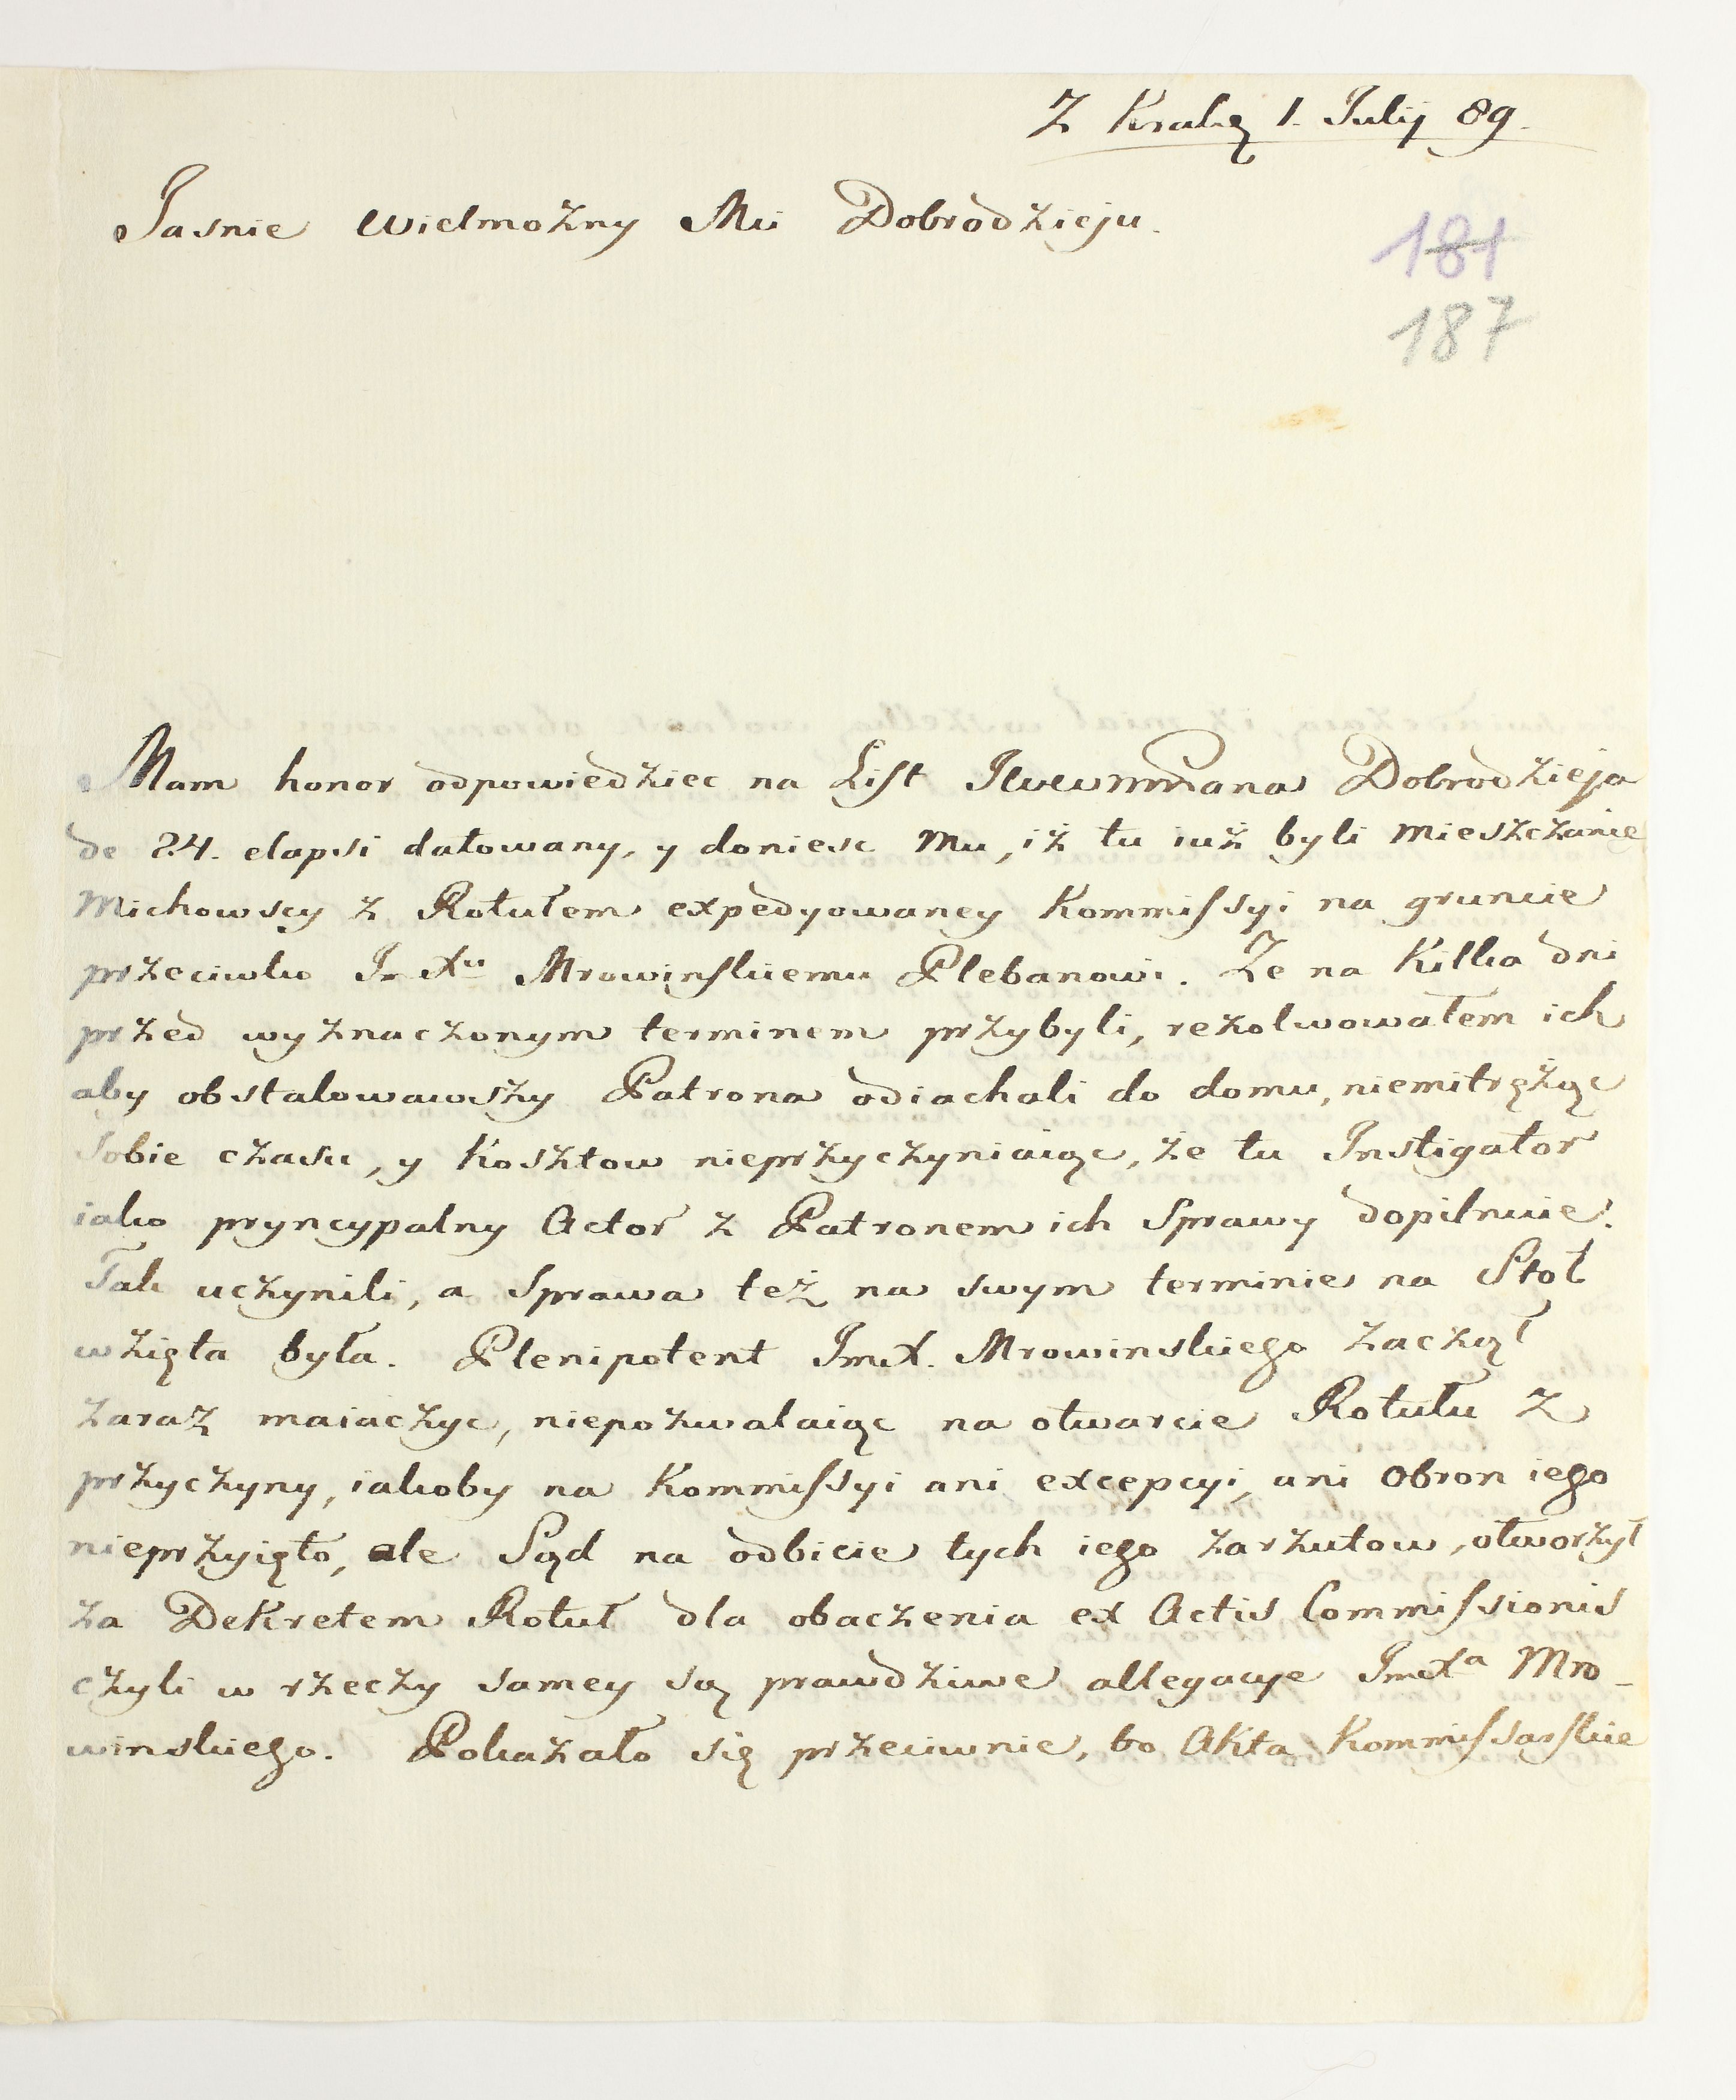 Z Krakֹ 1. Julij 89.
Jasnie Wielmożny Mći Dobrodzieju.
181
187
Mam honor odpowiedziec na List JWWMMPana Dobrodzieja
de 24. elapsi datowany, y doniesc Mu, iż tu iuż byli Mieszczanie
Michowscy z Rotułem expedyowaney Kommissyi na gruncie
przeciwko Im Xu Mrowinskiemu Plebanowi. Ze na Kilka dni
przed wyznaczonym terminem przybyli, rezolwowałem ich
aby obstalowawszy Patrona odiachali do domu, niemitrężąc
sobie czasu, y Kosztow nieprzyczyniaiąc, że tu Instigator
iako pryncypalny Actor z Patronem ich Sprawy dopilnuie.
Tak uczynili, a Sprawa też na swym terminie na Stoł
wzięta była. Plenipotent ImX. Mrowinskiego zaczął
zaraz maiaczyc, niepozwalaiąc na otwarcie Rotułu z
przyczyny, iakoby na Kommissyi ani excepcyi, ani Obron iego
nieprzyięto, ale Sąd na odbicie tych iego zarzutow, otworzył
za Dekretem Rotuł dla obaczenia ex Actis Commissionis
czyli w rzeczy samey są prawdziwe allegacye ImXa Mro-
winskiego. Pokazało się przeciwnie, bo Akta Kommissarskie